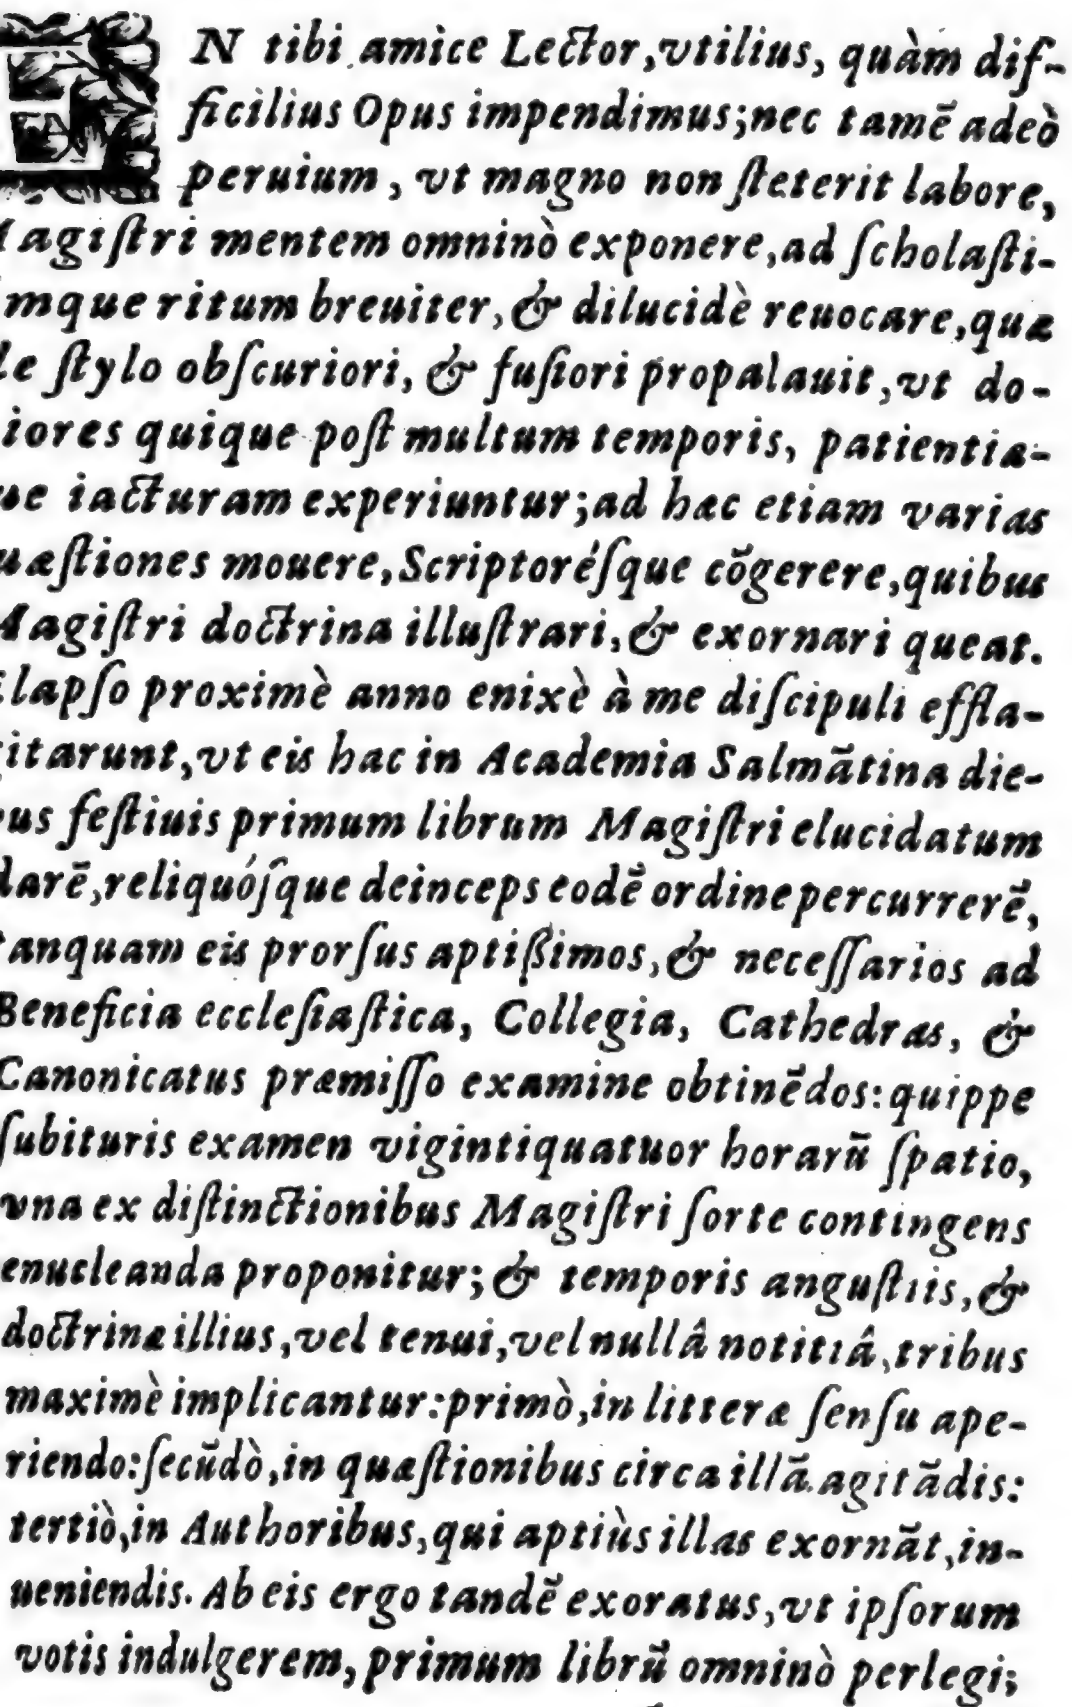 EN tibi amice Lector, vtilius, quàm dif-
ficilius Opus impendimus; nec tamẽ adeò
peruium, vt magno non ſteterit labore,
Magiſtri mentem omninò exponere, ad ſcholaſti-
mque ritum breuiter, & dilucidè reuocare, quæ
le ſtylo obſcuriori, & fuſiori propalauit, vt do-
iores quique poſt multum temporis, patientia-
ue iacturam experiuntur; ad hæc etiam varias
uæſtiones mouere, Scriptoréſque cõgerere, quibus
Magiſtri doctrina illuſtrari, & exornari queat.
lapſo proximè anno enixè à me diſcipuli effla-
itarunt, vt eis hac in Academia Salmãtina die-
us feſtiuis primum librum Magiſtri elucidatum
darẽ, reliquóſque deinceps eodẽ ordine percurrerẽ,
tanquam eis prorſus aptißimos, & neceſſarios ad
Beneficia eccleſiaſtica, Collegia, Cathedras, &
Canonicatus præmiſſo examine obtinẽdos: quippe
ſubituris examen vigintiquatuor horarũ ſpatio,
vna ex diſtinctionibus Magiſtri ſorte contingens
enucleanda proponitur; & temporis anguſtiis, &
doctrinæ illius, vel tenui, vel nullâ notitiâ, tribus
maximè implicantur: primò, in litteræ ſenſu ape-
riendo: ſecũdò, in quæſtionibus circa illã agitãdis:
tertiò, in Authoribus, qui aptiùs illas exornãt, in-
ueniendis. Ab eis ergo tandẽ exoratus, vt ipſorum
votis indulgerem, primum librũ omninò perlegi;